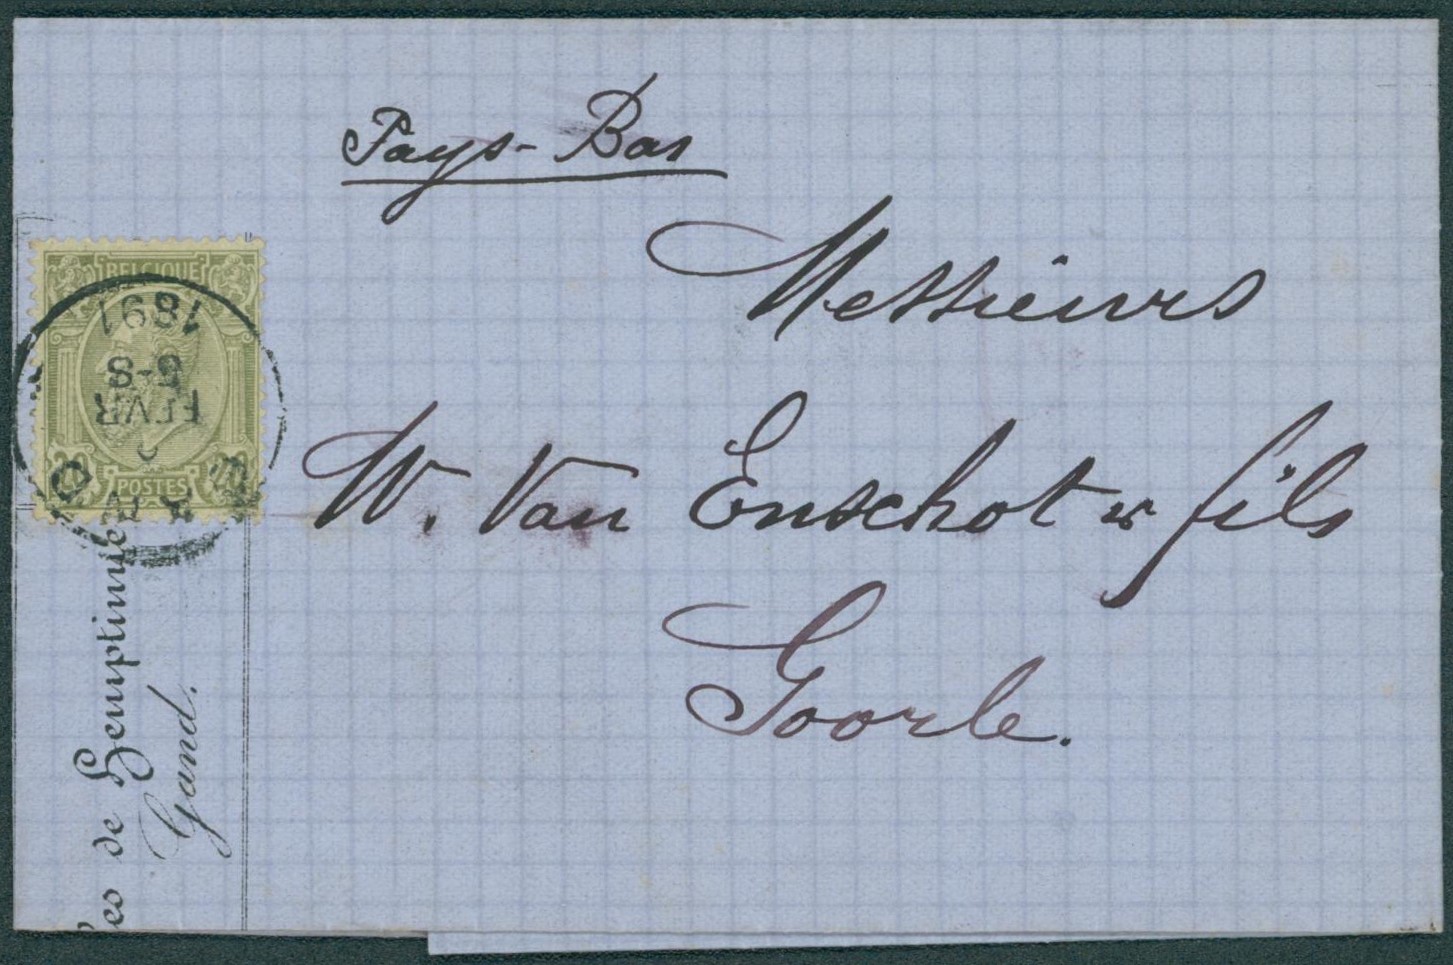 Pays-Bas
Messieurs
W. Van Enschot & fils
Goorle.
BELGIQUE
POSTES
1891
5-S
FEVR
de Hemptinne
Gand.